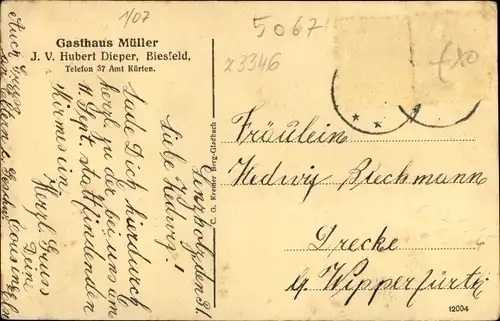 1/07
50671
23346
Gasthaus Müller
J. V. Hubert Dieper, Biesfeld,
Telefon 37 Amt Kürten.
den 31.
Liebe Hedwig!
Lade Dich hierdurch
herzl. zu der bei uns am
11. Sept. stattfindenden
Kirmes ein.
Herzl. Gruss
Deine
Cousine
C. G. Kremer Berg-Gladbach
Fräulein
Hedwig
Drecke
b/ Wipperfürth
12004